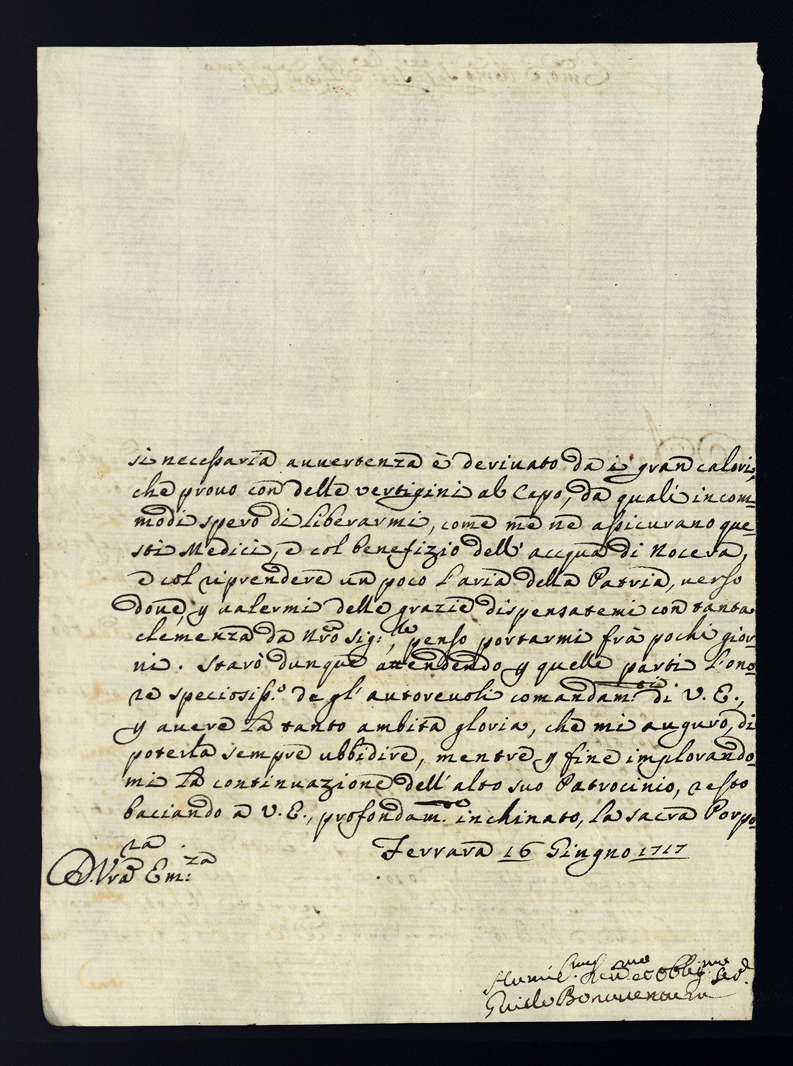 si necessaria auuertenza è deriuato da i gran calori,
che prouo con delle vertigini al Capo, da quali incom-
modi spero di liberarmi, come me ne assicurano que-
sti Medici, e col benefizio dell' acqua di Nocera,
e col riprendere un poco l'aria della Patria, verso
doue, p ualermi delle grazie dispensatemi con tanta
clemenza da Nrõ Sig.re, penso portarmi frà pochi gior-
ni. Starò dunque attendendo p quelle parti l'ono-
re speciosiss.o de gl' autoreuoli comandam.ti di V. E.,
p auere la tanto ambita gloria, che mi auguro, di
poterla sempre ubbidire, mentre p fine implorando-
mi la continuazione dell' alto suo Patrocinio, resto
baciando a V. E., profondam.te inchinato, la sacra Porpo-
ra.
Ferrara 16 Giugno 1717
D. Vrã Em.za
Humil.mo et obblig.mo
Guido Bonauentura